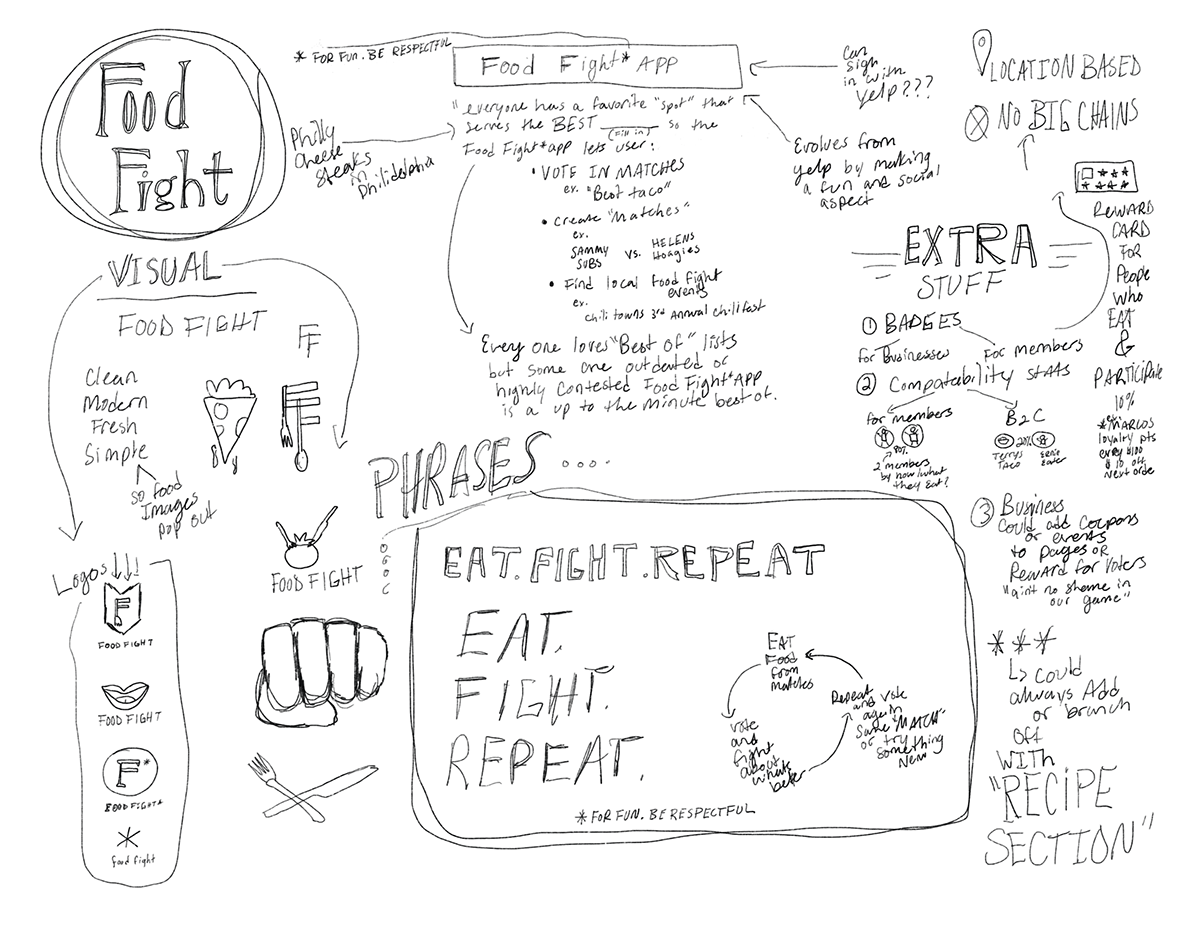 Food
Fight
* FOR FUN. BE RESPECTFUL
Food Fight* APP
"everyone has a favorite "spot" that
serves the BEST ____ so the
(Fill in)
Food Fight*app lets user:
• VOTE IN MATCHES
ex. "Best taco"
• Create "Matches"
ex.
SAMMY
SUBS
vs.
HELENS
Hoagies
• Find local food fight
events
ex.
chili towns 3rd Annual chilifest
Every one loves "Best of" lists
but some one outdated or
highly contested Food Fight*App
is a up to the minute best of.
Philly
Cheese
Steaks
in
Philidelphia
Can
sign
in with
yelp???
Evolves from
yelp by making
a fun and social
aspect
LOCATION BASED
NO BIG CHAINS
REWARD
CARD
FOR
People
Who
EAT
&
PARTICIPATE
10%
*MARCOS
loyalty pts
every $100
$10 off
Next order
EXTRA
STUFF
1 BADGES
for Businesses
For members
2 Compateability stats
for members
80%
2 members
by how/what
they Eat?
B2C
20%
Terrys
Taco
Ernie
Eater
3 Business
could add coupons
or events
to pages OR
Reward for voters
"aint no shame in
our game"
***
↳ could
always Add
or branch
off
WITH
"RECIPE
SECTION"
VISUAL
FOOD FIGHT
FF
Clean
Modern
Fresh
Simple
so food
Images
pop out
FOOD FIGHT
Logos
F
FOOD FIGHT
FOOD FIGHT
F*
FOOD FIGHT*
*
food fight
PHRASES ....
EAT. FIGHT. REPEAT
EAT.
FIGHT.
REPEAT.
EAT
Food
from
matches
Vote
and
fight
about
whats
better
Repeat
and vote
again
Same "MATCH"
or try
something
New
* FOR FUN. BE RESPECTFUL